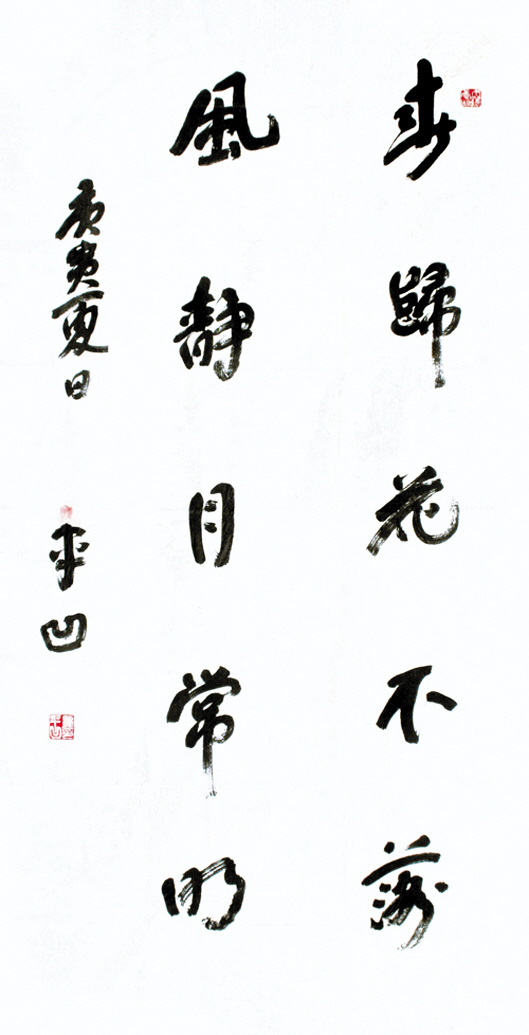 春歸花不落
風靜月常明
庚寅夏日
平凹